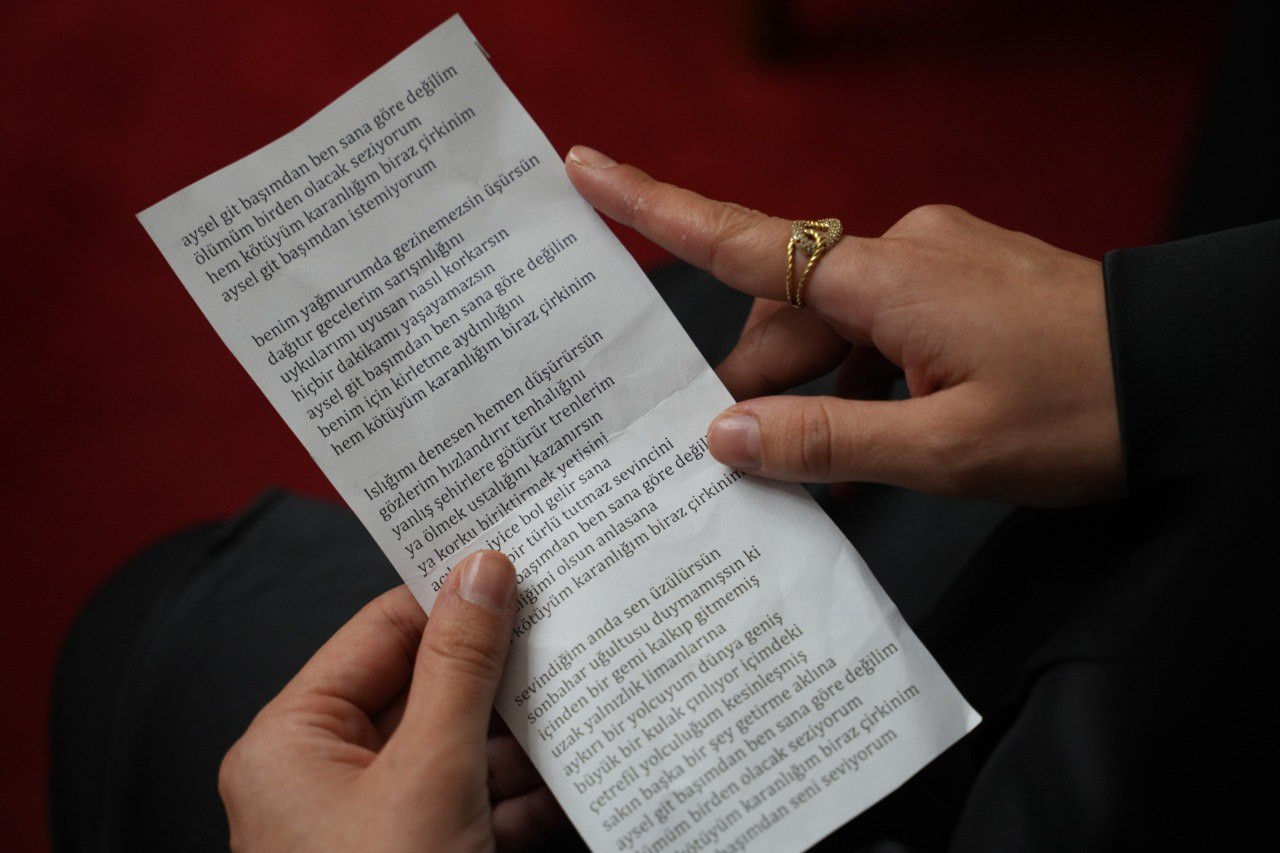 aysel git başımdan ben sana göre değilim
ölümüm birden olacak seziyorum
hem kötüyüm karanlığım biraz çirkinim
aysel git başımdan istemiyorum
benim yağmurumda gezinemezsin üşürsün
dağıtır gecelerim sarışınlığını
uykularımı uyusan nasıl korkarsın
hiçbir dakikamı yaşayamazsın
aysel git başımdan ben sana göre değilim
benim için kirletme aydınlığını
hem kötüyüm karanlığım biraz çirkinim
Islığımı denesen hemen düşürürsün
gözlerim hızlandırır tenhalığını
yanlış şehirlere götürür trenlerim
ya ölmek ustalığını kazanırsın
ya korku biriktirmek yetisini
iyice bol gelir sana
bir türlü tutmaz sevincini
başımdan ben sana göre
olsun anlasana
kötüyüm karanlığım biraz çirkinim
sevindiğim anda sen üzülürsün
sonbahar uğultusu duymamışsın ki
içinden bir gemi kalkıp gitmemiş
uzak yalnızlık limanlarına
aykırı bir yolcuyum dünya geniş
büyük bir kulak çınlıyor içimdeki
çetrefil yolculuğum kesinleşmiş
sakın başka bir şey getirme aklına
aysel git başımdan ben sana göre değilim
ölümüm birden olacak seziyorum
kötüyüm karanlığım biraz çirkinim
başımdan seni seviyorum